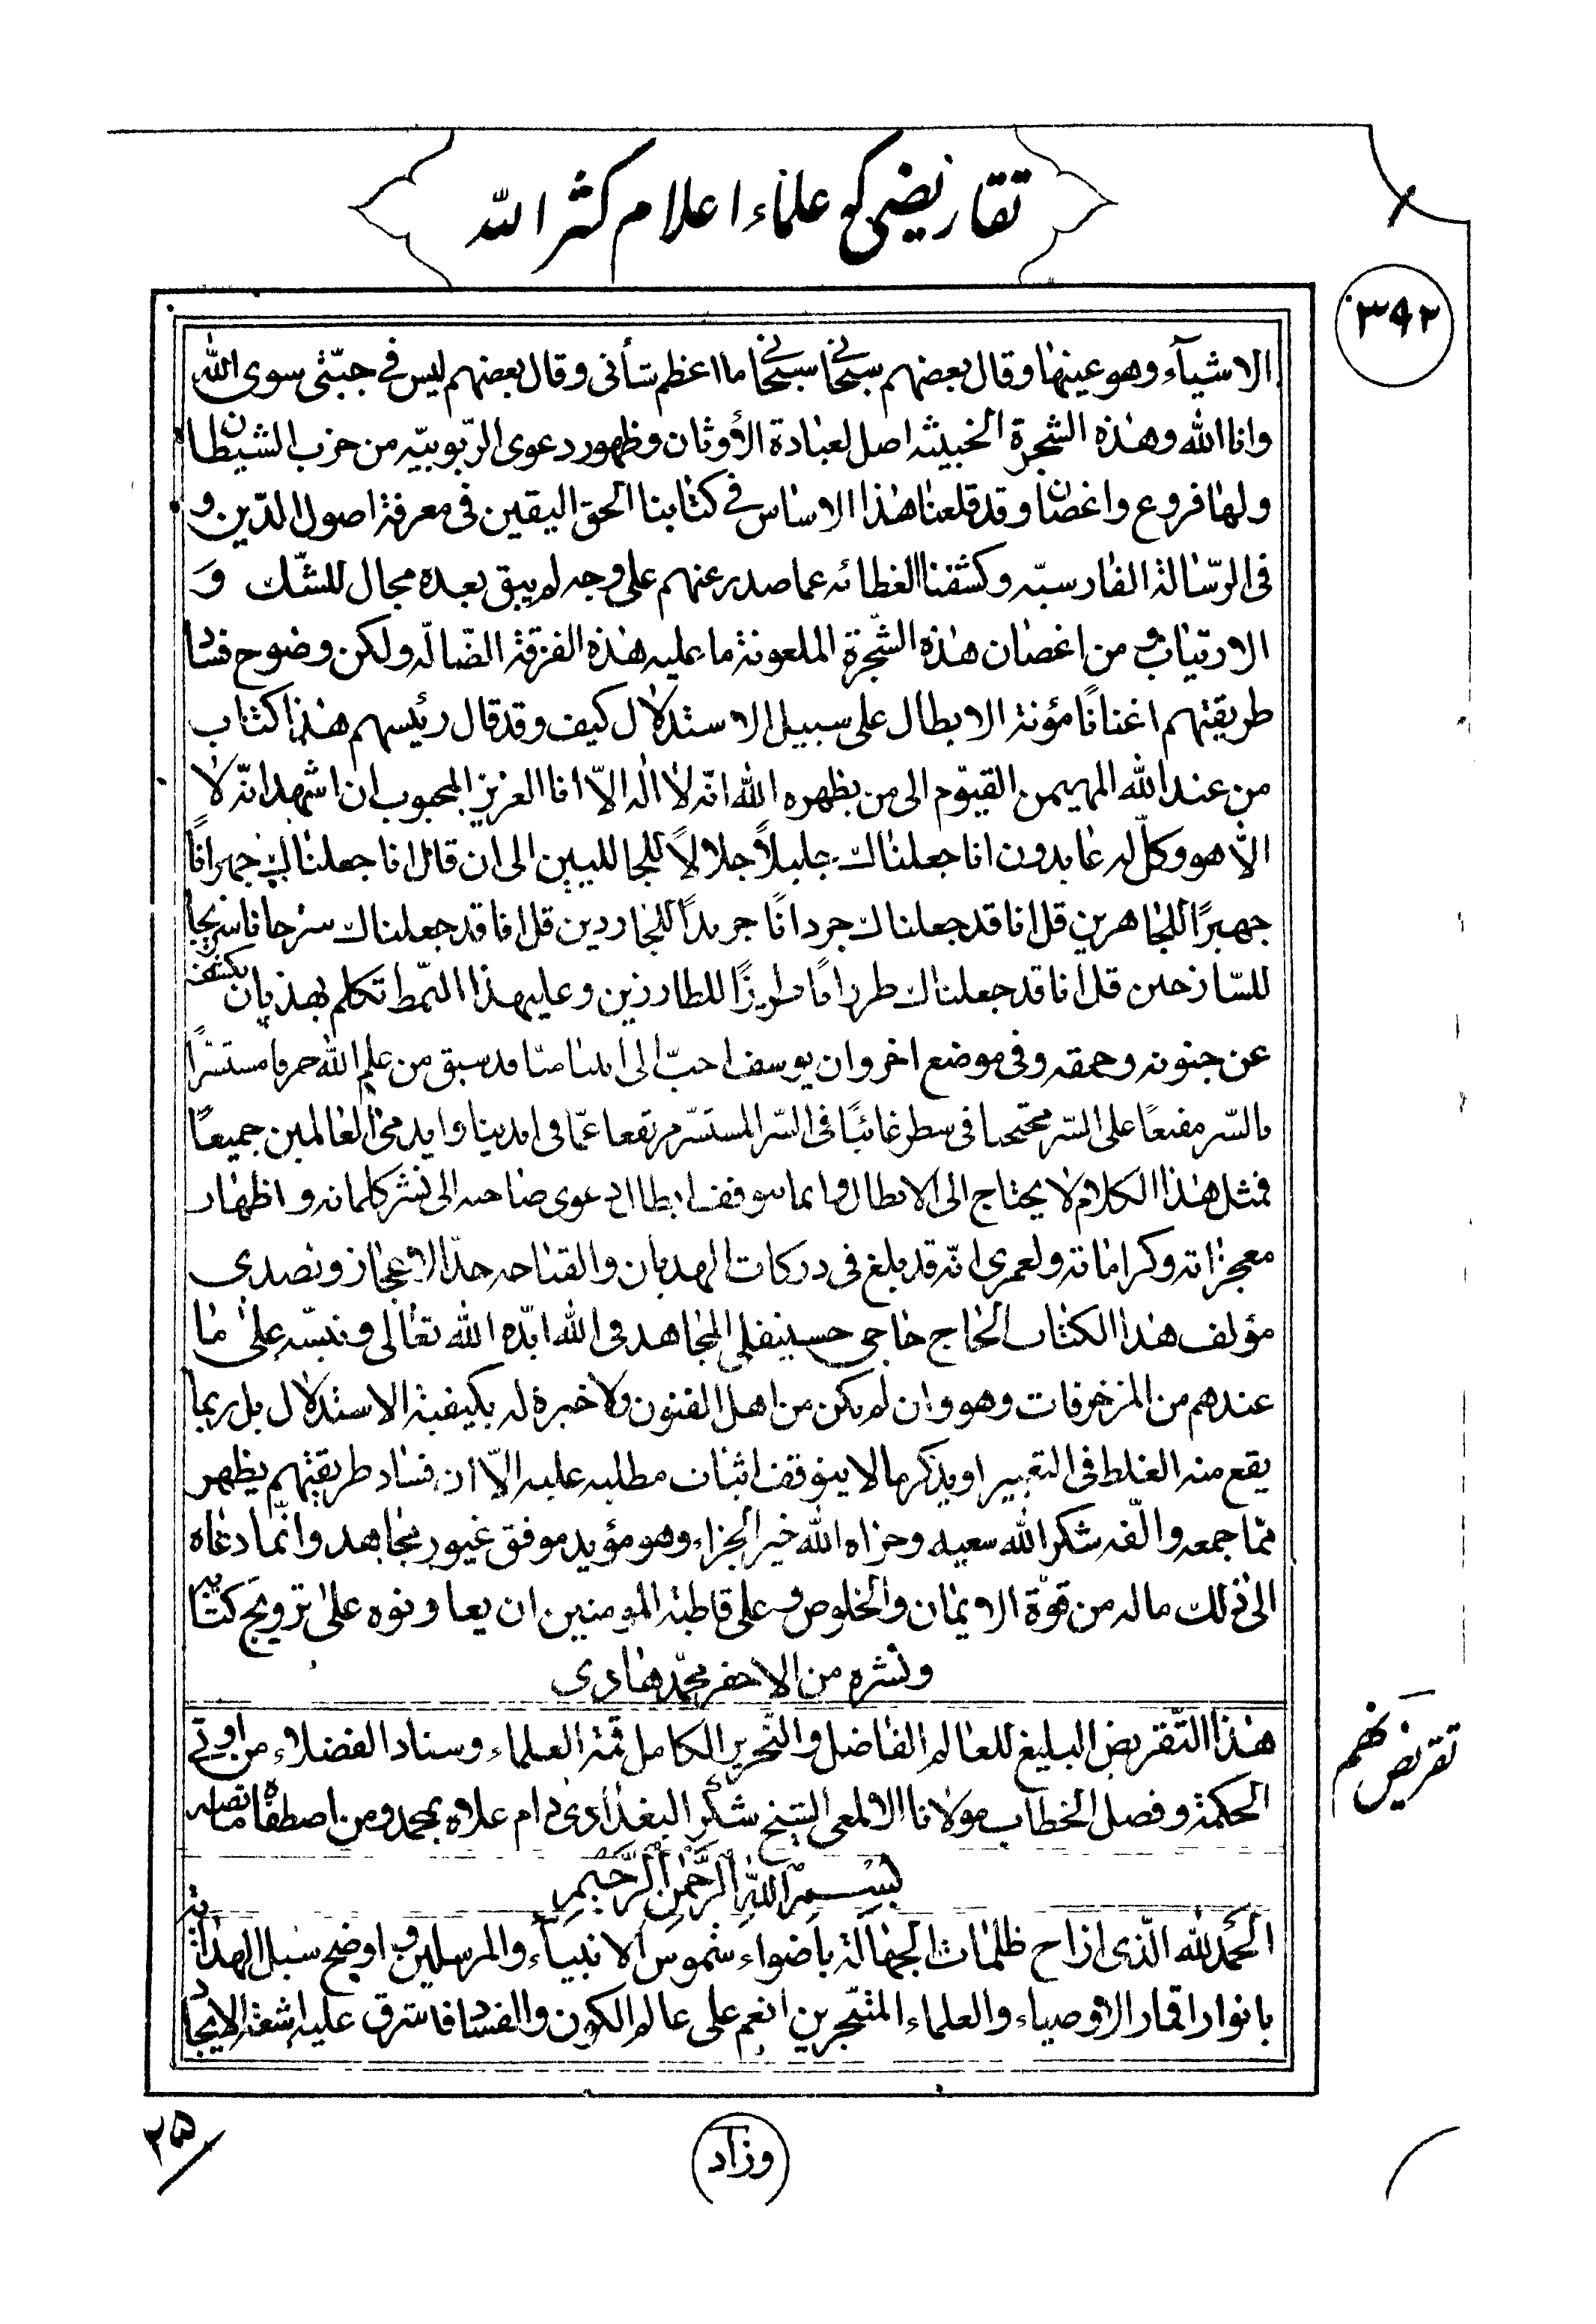 تقاریضی که علماء اعلام کثر الله
۳۹۲
الاشیآء وهو عینها وقال بعضهم سبحانی سبحانی ما اعظم شأنی وقال بعضهم لیس فی جبّتی سوی الله
وانا الله وهذه الشجرة الخبیثه اصل لعبادة الأوثان وظهور دعوی الرّبوبیّه من حزب الشیطان
ولها فروع واغصان وقد قلعنا هذا الاساس فی کتابنا الحق الیقین فی معرفة اصول الدّین و
فی الرّسالة الفارسیّه وکشفنا الغطائه عما صدر عنهم علی وجه لم یبق بعده مجال للشّک وَ
الارتیاب و من اغصان هذه الشّجرة الملعونة ما علیه هذه الفرقة الضّالّه ولکن وضوح فساد
طریقتهم اغنانا مؤنة الابطال علی سبیل الاستدلال کیف وقد قال رئیسهم هذا کتاب
من عند الله المهیمن القیّوم الی من یظهره الله انّه لا اله الاّ انا العزیز المحبوب ان اشهد انّه لا
الاّ هو وکلّ له عابدون انا جعلناک جلیلاً جلالاً للجاللیین الی ان قال انا جعلناک جهرانًا
جهیرًا للجاهرین قل انا قد جعلناک جردانًا جریدًا للجاردین قل انا قد جعلناک سرحانا سریحا
للسّارحین قل انا قد جعلناک طرزامًا طریزًا للطارزین وعلیهذا النّمط تکلم بهذیان یکشف
عن جنونه وحمقه وفی موضع اخر وان یوسف احبّ الی ابینا منّا قد سبق من علم الله حرفا مستسرًّا
بالسّر مقنعًا علی السّر محتجبا فی سطر غائبًا فی السّر المستسرّ مرتفعا عمّا فی ایدینا وایدی العالمین جمیعًا
فمثل هذا الکلام لا یحتاج الی الابطال وانما یتوقف ابطال دعوی صاحبه الی نشر کلماته واظهار
معجزاته وکراماته ولعمری انّه قد بلغ فی درکات الهذیان والقباحه حدّ الاعجاز وتصدی
مؤلف هذا الکتاب الحاج حاجی حسینقلی المجاهد فی الله ایّده الله تعالی ونبّه علی ما
عندهم من المزخرفات وهو وان لم یکن من اهل الفنون ولا خبرة له بکیفیة الاستدلال بل ربما
یقع منه الغلط فی التعبیر او یذکر مالا یتوقف اثبات مطلبه علیه الاّ ان فساد طریقتهم یظهر
ممّا جمعه والّفه شکر الله سعیه وجزاه الله خیر الجزاء وهو مؤید موفق غیور مجاهد وانّما دعاه
الی ذلک ماله من قوّة الایمان والخلوص و علی قاطبة المومنین ان یعاونوه علی ترویج کتابه
ونشره من الاحقر محمّد هادی
تقریض نهم
هذا التّقریض البلیغ للعالم الفاضل والنّحریر الکامل ثمّة العلماء وسناد الفضلاء من اوتی
الحکمة وفصل الخطاب مولانا الالمعی الشیخ شکر البغدادی دام علاه بمحمد ومن اصطفاه
بسم الله الرّحمن الرّحیم
الحمد لله الّذی ازاح ظلمات الجهالة باضواء شموس الانبیآء والمرسلین و اوضح سبل الهدایة
بانوار اقمار الأوصیاء والعلماء المتبّحرین انعم علی عالم الکون والفساد فاشرق علیه اشعة الایجاد
وزاد
۲۵